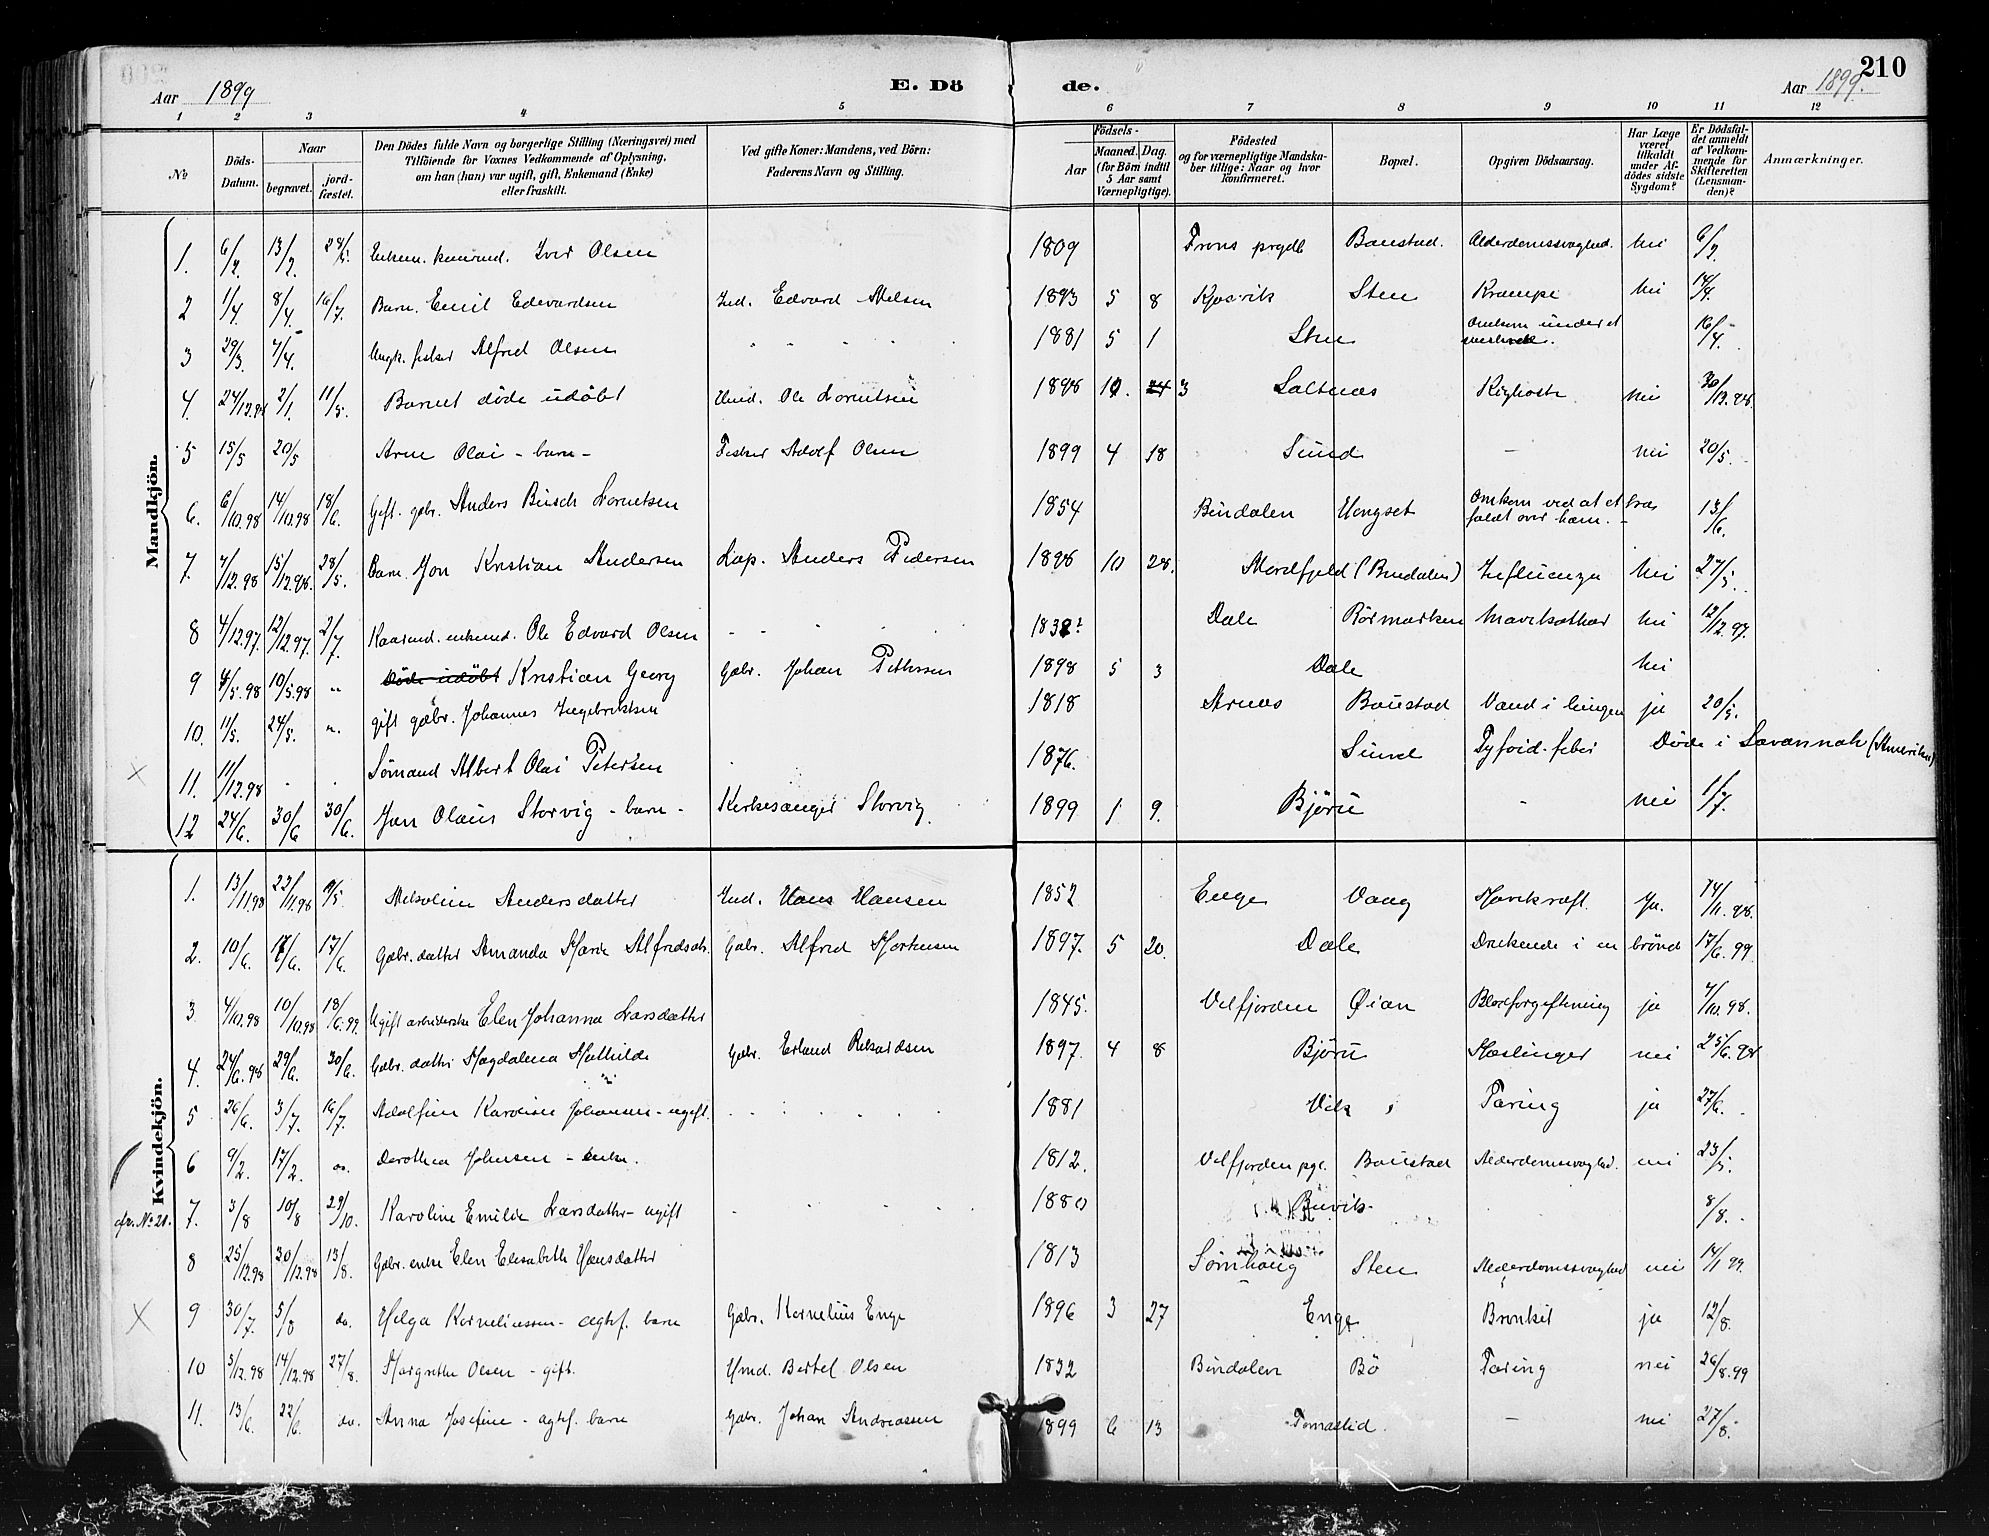 210
Aar 1899
E. Dö
de.
Aar 1899.
1 2 3 4 5 6 7 8 9 10 11 12
No
Döds-Datum.
Naar
begravet.
jord-fæstet.
Den Dödes fulde Navn og borgerlige Stilling (Næringsvei) med
Tilföiende for Voxnes Vedkommende af Oplysning,
om han (hun) var ugift, gift, Enkemand (Enke)
eller fraskilt.
Ved gifte Koner: Mandens, ved Börn:
Faderens Navn og Stilling.
Födsels-
Aar
Maaned. Dag.
(for Börn indtil
5 Aar samt
Værnepligtige).
Födested
og for værnepligtige Mandska-
ber tillige: Naar og hvor
konfirmeret.
Bopæl.
Opgiven Dödsaarsag.
Har Læge
været
tilkaldt
under Af-
dödes sidste
Sygdom?
Er Dödsfal-
det anmeldt
af Vedkom-
mende for
Skifteretten
(Lensman-
den)?
Anmærkninger.
Mandkjön.
1. 6/2 13/2 Iver Olsen 1809 Baustad. Alderdomssvaghed. nei 6/2
2 1/4 8/4 16/7 Barn. Emil Edvardsen Ind. Edvard Nilsen 1893 5 8 Kjosvik Sten Krampe nei 14/4
3 29/3 4/4 Ungk. fisker Alfred Olsen 1881 5 1 Sten Omkom under et 16/4
4. 24/12.98 2/1. 11/5. Barnet döde udöbt Ind. Ole Lorentsen 1898 3 Saltnæs Kighoste nei 30/12.98
5 15/5 20/5 Arne Olai - barn - Fisker Adolf Olsen 1899 4 18 Sund - nei 20/5.
6. 6/10.98 14/10.98 18/6. Gift. gbr. Anders Busch Lorntsen 1854 Bindalen Hongset Omkom ved at et træ
faldt over ham. - 13/6.
7. 7/12.98 15/12.98. 28/5. Barn. Jon Kristian Andersen Lap. Anders Pedersen 1898 10 28. Nordfjeld (Bindalen) Influenza nei 27/5
8 4/12.97 12/12.97. 2/7. Ole Edvard Olsen Dale Rörmarken Mavekathar nei 12/12.97.
9 4/5.98 10/5.98 „ Döde udöbt Kristian Georg Gbr. Johan Pettersen 1898 5 3 Dale nei
10. 11/5. 24/5. gift gbr. Johannes Ingebriktsen 1818 Arnæs Baustad Vand i lungen ja 20/5.
11. 11/12.98 Sömand Albert Olai Petersen 1876. Sund Tyfoid-feber Döde i Savannah (Amerika)
12 24/6. 30/6 30/6. Jon Olaus Storvig - barn - Kirkesanger Storvig. 1899 1 9. Bjørn - nei 1/7.
Kvindekjön.
1. 13/11.98 22/11.98 Andersdatter Ind. Hans Hansen 1852 Enge Vaag Mavekræft. Ja. 14/11.98.
2. 10/6. 17/6. 17/6. Gbr. datter Amanda Marie Alfredsdtr. Gbr. Alfred Mortensen 1897. 5 20. Dale Druknede i en brönd 17/6.99.
3. 4/10.98 10/10.98 18/6.99 Ugift arbeiderske Elen Johanna Larsdatter 1845. Velfjorden Øian Blodforgiftning ja 7/10.98.
4. 24/6.98 29/6. 30/6. Gbr. datter Magdalena Mathilde Gbr. Erland Rikardsen 1897. 4 8 Bjørn Mæslinger nei 25/6.98
5 26/6. 3/7. 16/7. Adolfine Karoline Johansen - ugift. 1881 Vik Tæring ja 27/6.
6 9/2. 17/2. Dorothea Johnsen - enke. 1812. Velfjorden pgl. Baustad Alderdomssvaghed. nei 23/5.
cfr. No 21. 7. 3/8 10/8 29/10. Karoline Emilie Larsdatter - ugift 1880 Burvik. 8/8.
8 25/12.98 30/12.98 13/8. Gbr. enke Elen Elisabeth Hansdatter 1813 Sömhaug Sten Alderdomssvaghed nei 14/1 99.
9 30/7. 5/8 do. Helga Korneliussen - ægtef. barn Gbr. Kornelius Enge 1896 3 27 Enge Bronkit ja 12/8.
10 5/12.98 14/12.98 27/8. Margrethe Olsen - gift. Ind. Bertel Olsen 1832 Bindalen Bö Tæring nei 26/8.99
11. 13/6. 22/6. do. Anna Josefine - ægtef. barn Gbr. Johan Andreassen 1899 6 13 Tomaslid. - nei 27/8.